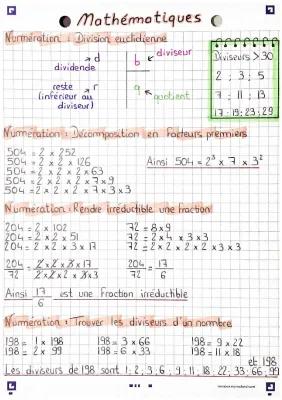 Mathématiques
Numération : Division euclidienne
d
dividende
b
diviseur
reste
(inférieur au
diviseur)
r
q
quotient
Diviseurs > 30
2 ; 3 ; 5
7 ; 11 ; 13
17 ; 19 ; 23 ; 29
Numération : Décomposition en facteurs premiers
504 = 2 x 252
504 = 2 x 2 x 126
504 = 2 x 2 x 2 x 63
504 = 2 x 2 x 2 x 7 x 9
504 = 2 x 2 x 2 x 7 x 3 x 3
Ainsi 504 = 2³ x 7 x 3²
Numération : Rendre irréductible une fraction
204 = 2 x 102
204 = 2 x 2 x 51
204 = 2 x 2 x 3 x 17
72 = 8 x 9
72 = 2 x 4 x 3 x 3
72 = 2 x 2 x 2 x 3 x 3
204 = 2 x 2 x 3 x 17
72 2 x 2 x 2 x 3 x 3
204 = 17
72 6
Ainsi 17 est une fraction irréductible
6
Numération : Trouver les diviseurs d'un nombre
198 = 1 x 198 198 = 3 x 66 198 = 9 x 22
198 = 2 x 99 198 = 6 x 33 198 = 11 x 18
et 198
Les diviseurs de 198 sont 1 ; 2 ; 3 ; 6 ; 9 ; 11 ; 18 ; 22 ; 33 ; 66 ; 99